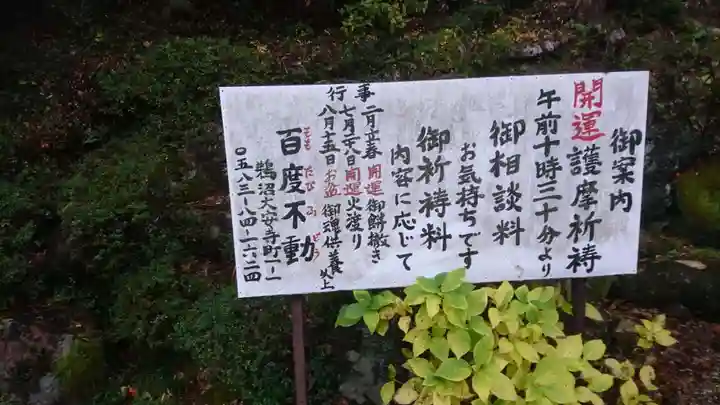 御案内
開運護摩祈祷
午前十時三十分より
御相談料
お気持ちです
御祈祷料
内容に応じて
行事
二月立春 開運御餅撒き
七月二八日 開運火渡り
八月十五日 お盆御魂供養 以上
百度不動
ももたびふどう
鵜沼大安寺町一ー一
〇五八三ー八四ー一六二四